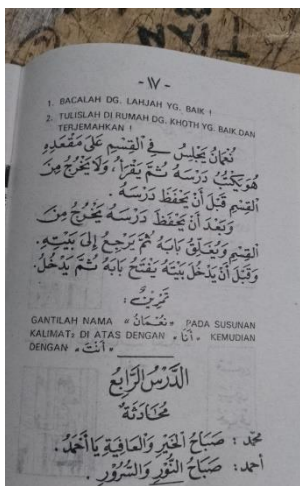 - ١٧ -
1. BACALAH DG. LAHJAH YG. BAIK !
2. TULISLAH DI RUMAH DG. KHOTH YG. BAIK DAN
TERJEMAHKAN !
نُعْمَانُ يَجْلِسُ فِي الْقِسْمِ عَلَى مَقْعَدِهِ
هُوَ يَكْتُبُ دَرْسَهُ ثُمَّ يَقْرَأُ، وَلَا يَخْرُجُ مِنَ
الْقِسْمِ قَبْلَ أَنْ يَحْفَظَ دَرْسَهُ .
وَبَعْدَ أَنْ يَحْفَظَ دَرْسَهُ يَخْرُجُ مِنَ
الْقِسْمِ وَيُغَلِّقُ بَابَهُ ثُمَّ يَرْجِعُ إِلَى بَيْتِهِ.
وَقَبْلَ أَنْ يَدْخُلَ بَيْتَهُ يَفْتَحُ بَابَهُ ثُمَّ يَدْخُلُ.
تَمْرِيْنٌ :
GANTILAH NAMA « نُعْمَانُ » PADA SUSUNAN
KALIMAT2 DI ATAS DENGAN « أَنَا » KEMUDIAN
DENGAN « أَنْتَ »
الدَّرْسُ الرَّابِعُ
مُحَادَثَةٌ
محمّد : صَبَاحُ الْخَيْرِ وَالْعَافِيَةِ يَا أَحْمَدُ .
أحمد : صَبَاحُ النُّوْرِ وَالسُّرُوْرِ .